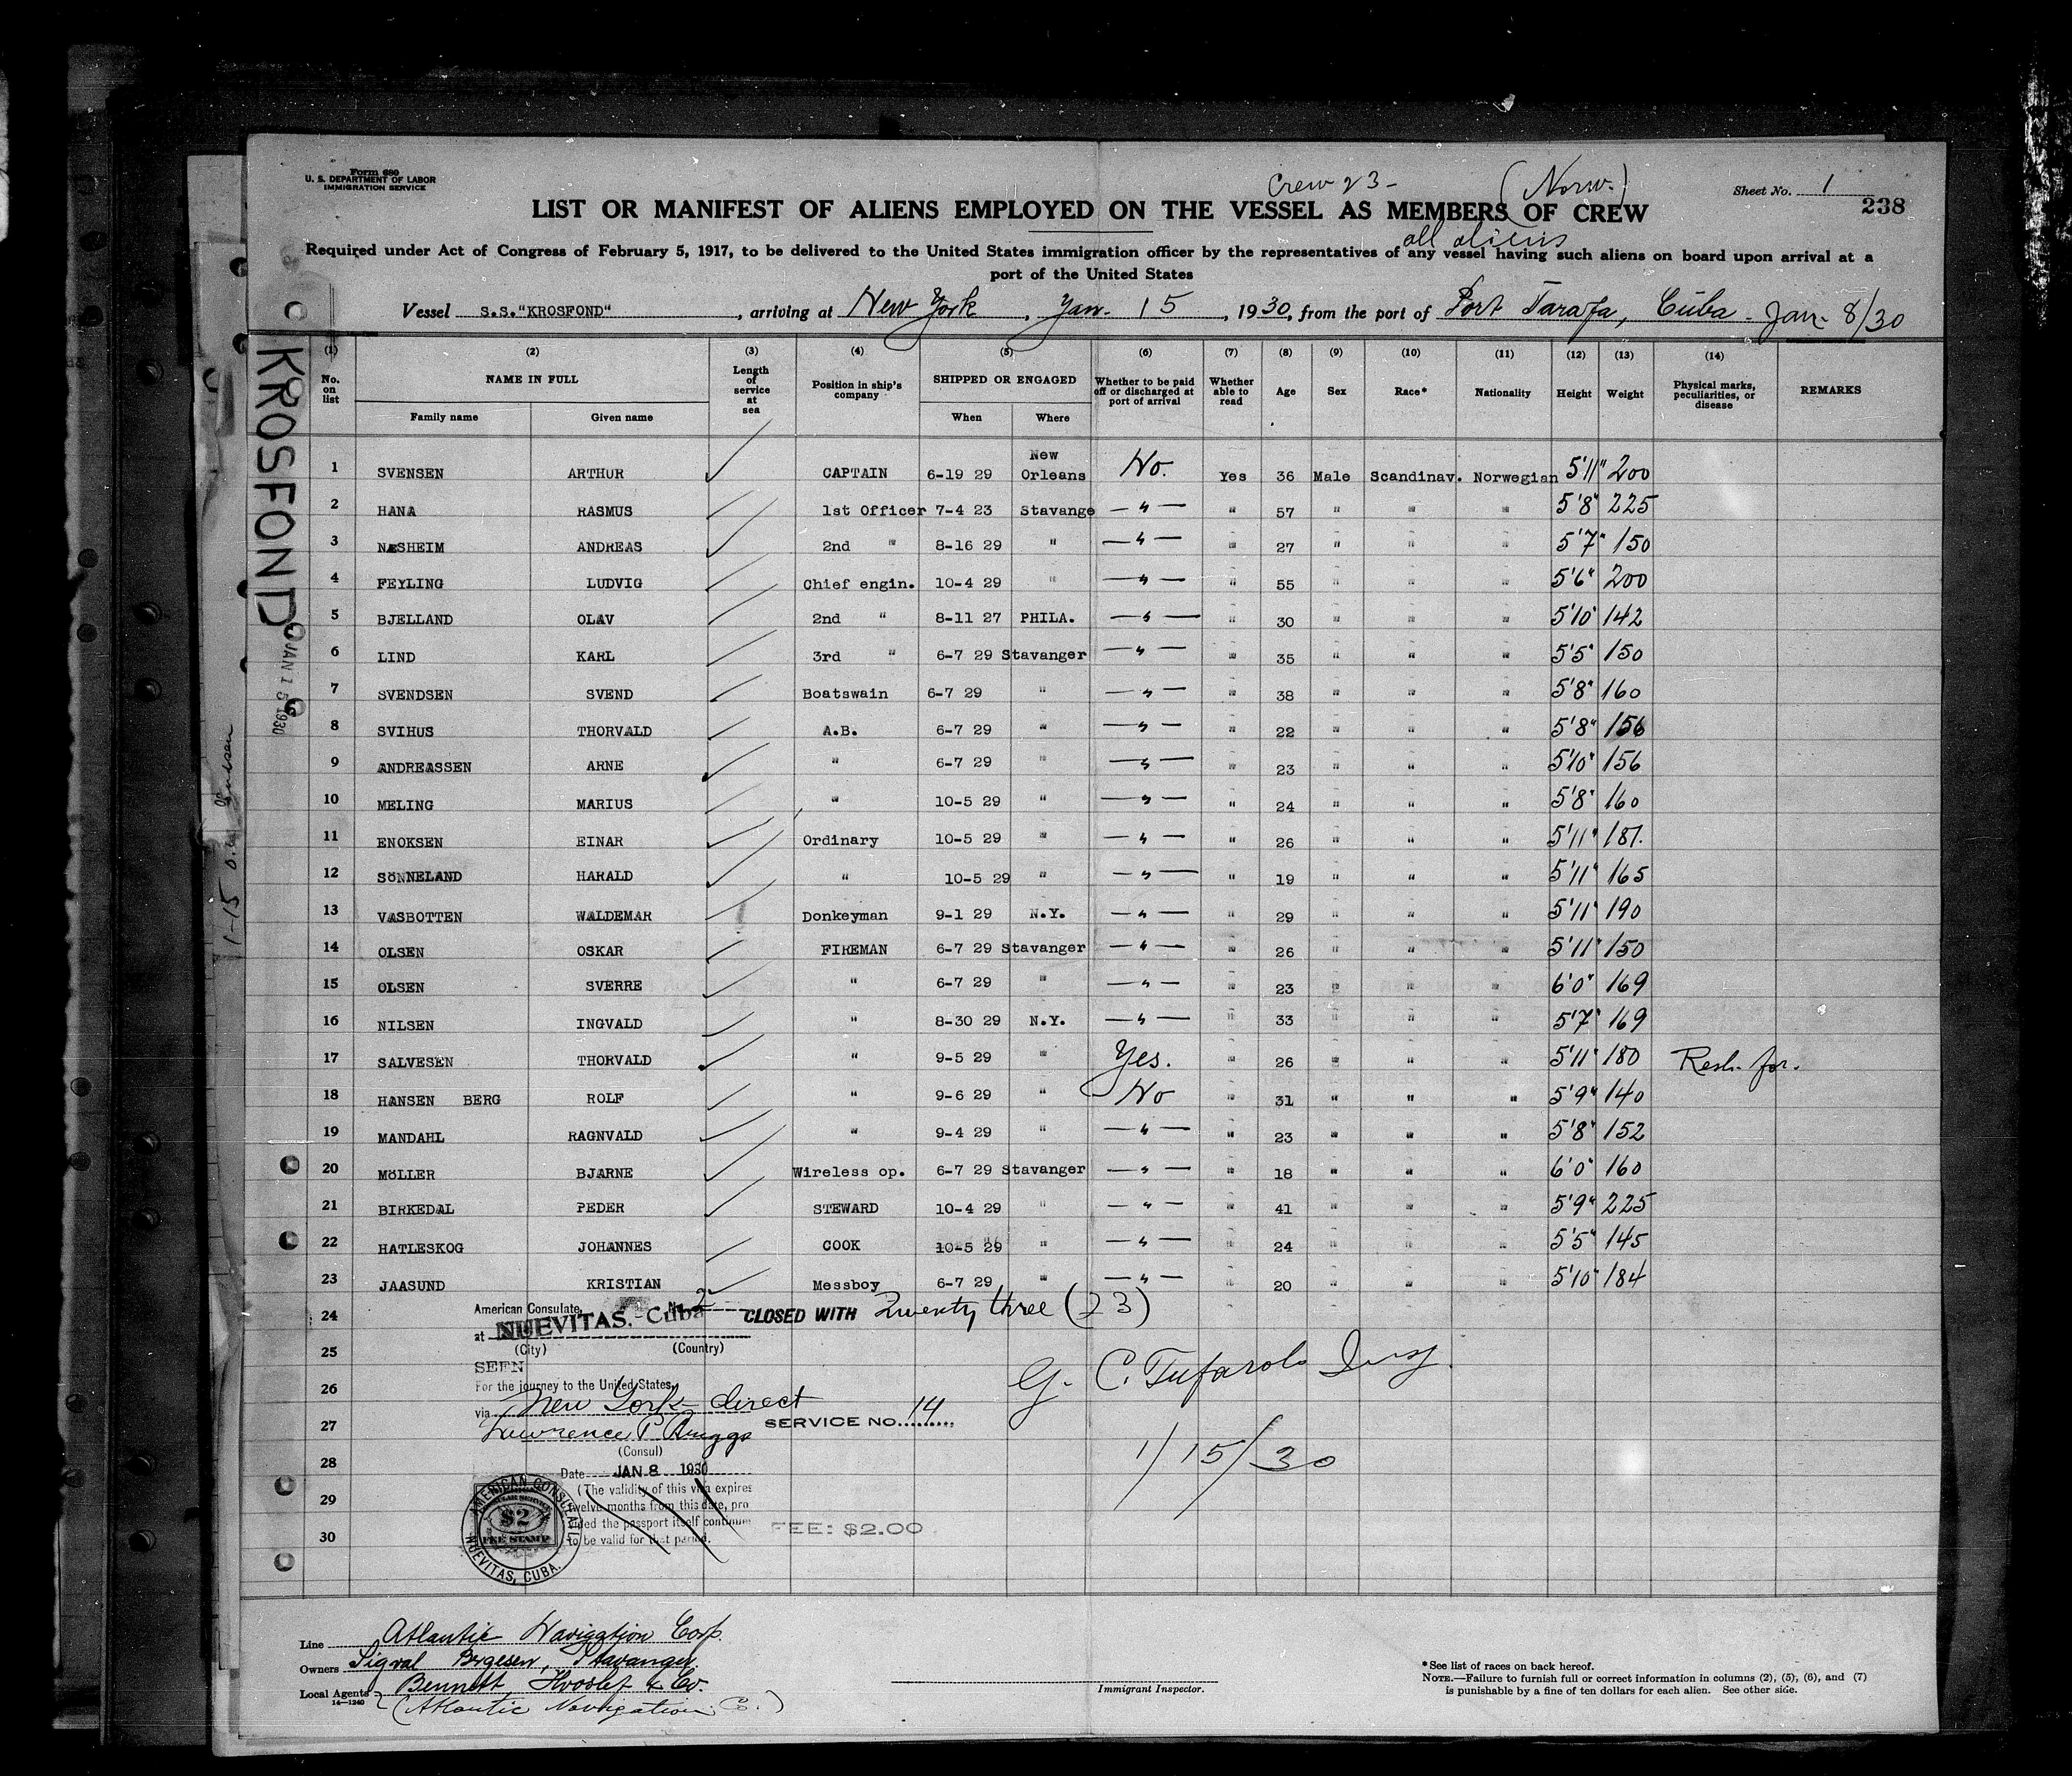 Form 680
U. S. DEPARTMENT OF LABOR
IMMIGRATION SERVICE
Crew 23 - (Norw.)
Sheet No. 1
238
LIST OR MANIFEST OF ALIENS EMPLOYED ON THE VESSEL AS MEMBERS OF CREW
all aliens
Required under Act of Congress of February 5, 1917, to be delivered to the United States immigration officer by the representatives of any vessel having such aliens on board upon arrival at a
port of the United States
Vessel S.S."KROSFOND", arriving at New York, Jan. 15, 1930, from the port of Port Tarafa, Cuba - Jan. 8/30
KROSFOND
JAN 15 1930
(1) (2) (3) (4) (5) (6) (7) (8) (9) (10) (11) (12) (13) (14)
No. on list NAME IN FULL Length of service at sea Position in ship's company SHIPPED OR ENGAGED Whether to be paid off or discharged at port of arrival Whether able to read Age Sex Race* Nationality Height Weight Physical marks, peculiarities, or disease REMARKS
Family name Given name When Where
1 SVENSEN ARTHUR CAPTAIN 6-19 29 New Orleans No. Yes 36 Male Scandinav. Norwegian 5'11" 200
2 HANA RASMUS 1st Officer 7-4 23 Stavange — " — " 57 " " " 5'8" 225
3 NÆSHEIM ANDREAS 2nd " 8-16 29 " — " — " 27 " " " 5'7" 150
4 FEYLING LUDVIG Chief engin. 10-4 29 " — " — " 55 " " " 5'6" 200
5 BJELLAND OLAV 2nd " 8-11 27 PHILA. — " — " 30 " " " 5'10" 142
6 LIND KARL 3rd " 6-7 29 Stavanger — " — " 35 " " " 5'5" 150
7 SVENDSEN SVEND Boatswain 6-7 29 " — " — " 38 " " " 5'8" 160
8 SVIHUS THORVALD A.B. 6-7 29 " — " — " 22 " " " 5'8" 156
9 ANDREASSEN ARNE " 6-7 29 " — " — " 23 " " " 5'10" 156
10 MELING MARIUS " 10-5 29 " — " — " 24 " " " 5'8" 160
11 ENOKSEN EINAR Ordinary 10-5 29 " — " — " 26 " " " 5'11" 181.
12 SÖNNELAND HARALD " 10-5 29 " — " — " 19 " " " 5'11" 165
13 VASBOTTEN WALDEMAR Donkeyman 9-1 29 N.Y. — " — " 29 " " " 5'11" 190
14 OLSEN OSKAR FIREMAN 6-7 29 Stavanger — " — " 26 " " " 5'11" 150
15 OLSEN SVERRE " 6-7 29 " — " — " 23 " " " 6'0" 169
16 NILSEN INGVALD " 8-30 29 N.Y. — " — " 33 " " " 5'7" 169
17 SALVESEN THORVALD " 9-5 29 " Yes. " 26 " " " 5'11" 180
18 HANSEN BERG ROLF " 9-6 29 " No " 31 " " " 5'9" 140
19 MANDAHL RAGNVALD " 9-4 29 " — " — " 23 " " " 5'8" 152
20 MÖLLER BJARNE Wireless op. 6-7 29 Stavanger — " — " 18 " " " 6'0" 160
21 BIRKEDAL PEDER STEWARD 10-4 29 " — " — " 41 " " " 5'9" 225
22 HATLESKOG JOHANNES COOK 10-5 29 " — " — " 24 " " " 5'5" 145
23 JAASUND KRISTIAN Messboy 6-7 29 " — " — " 20 " " " 5'10" 184
24
25
26
27
28
29
30
American Consulate, No. 2
at NUEVITAS. Cuba
(City) (Country)
CLOSED WITH Twenty three (23)
SEEN
For the journey to the United States,
via New York direct
Lawrence P. Briggs
(Consul)
SERVICE NO. 14
Date JAN 8 1930
(The validity of this visa expires
twelve months from this date, pro
vided the passport itself continues
to be valid for that period.
AMERICAN CONSULATE
NUEVITAS, CUBA.
$2
FEE STAMP
FEE: $2.00
G. C. Tufarolo Insp.
1/15/30
Line Atlantic Navigation Corp.
Owners Sigval Bergesen, Stavanger.
Local Agents Bennett Hvoslef & Co.
14—1240
(Atlantic Navigation Co.)
Immigrant Inspector.
*See list of races on back hereof.
NOTE.—Failure to furnish full or correct information in columns (2), (5), (6), and (7)
is punishable by a fine of ten dollars for each alien. See other side.